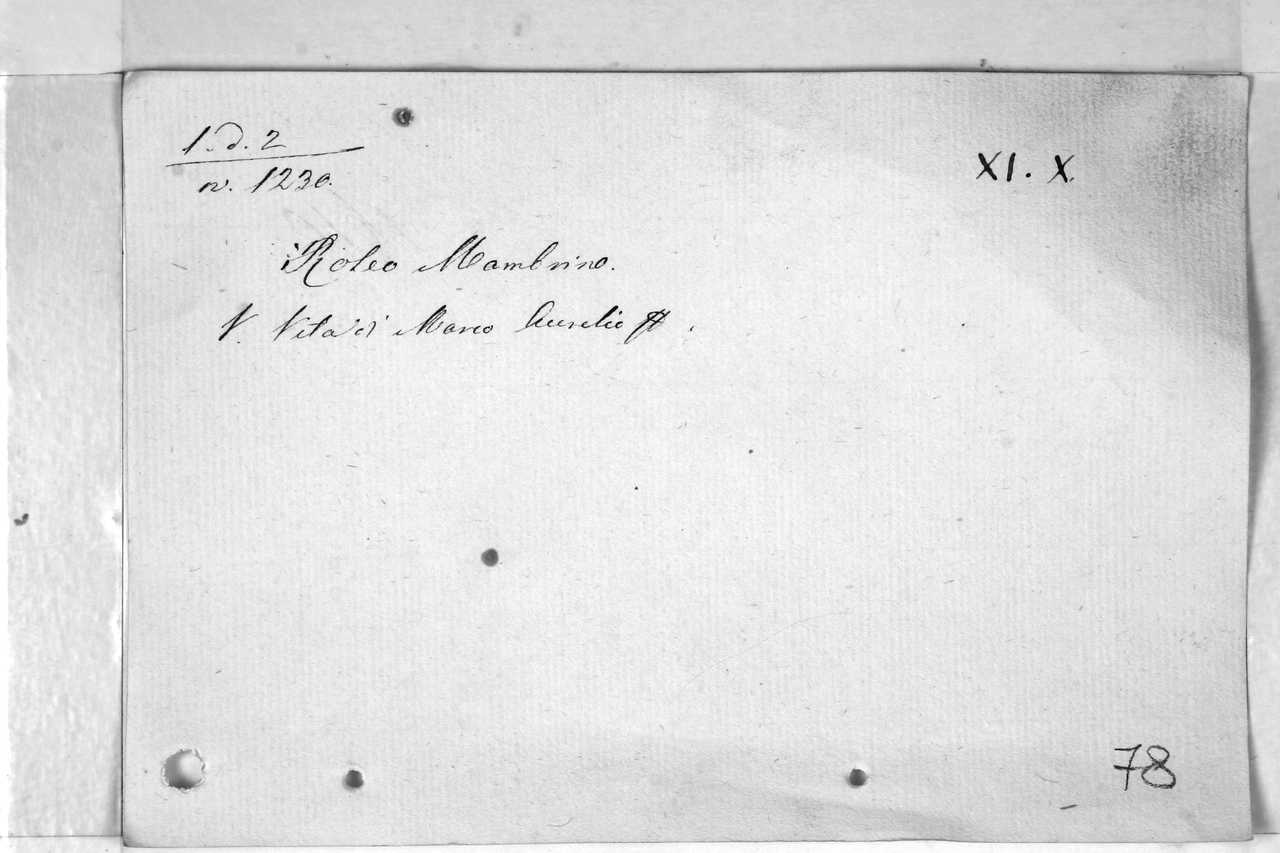 1. d. 2
n. 1230.
XI. X.
Roseo Mambrino.
V. Vita di Marco Aurelio
78